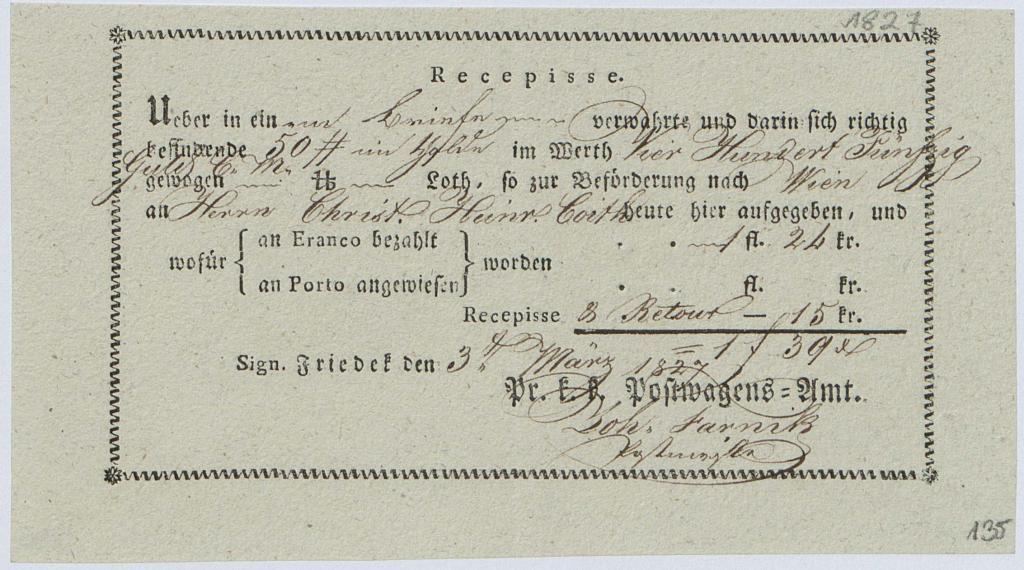 1827
Recepisse.
Ueber in ein Briefe verwahrte und darin sich richtig
befindende 50 # in Golde im Werth Vier Hundert Fünfzig
Guld C. M.
gewogen — ℔ — Loth, so zur Beförderung nach Wien
an Herrn Christ. Heinr Coith heute hier aufgegeben, und
wofür { an Franco bezahlt } worden . . 1 fl. 24 kr.
an Porto angewiesen . . fl. kr.
Recepisse & Retour — 15 kr.
Sign. Friedek den 3t. März 1827 = 1 f 39 x
Pr. k. k. Postwagens=Amt.
Joh. Farnik
Postmeister
135